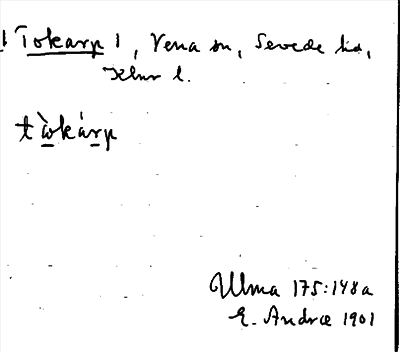 ! Tokarp 1, Vena sn, Sevede hd,
Klmr l.
tòkárp
Ulma 175:148a
E. Andræ 1901